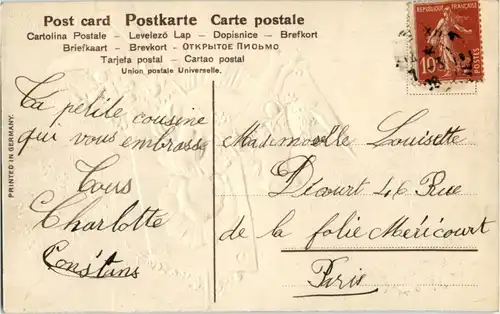 Post card Postkarte Carte postale
Cartolina Postale – Levelező Lap – Dopisnice – Brefkort
Briefkaart – Brevkort – ОТКРЫТОЕ ПИСЬМО
Tarjeta postal – Cartao postal
Union postale Universelle.
REPUBLIQUE FRANÇAISE
10
POSTES
PRINTED IN GERMANY.
Ta petite cousine
qui vous embrasse
Tous
Charlotte
Constans
Mademoiselle Louisette
Décourt 46 Rue
de la folie Méricourt
Paris